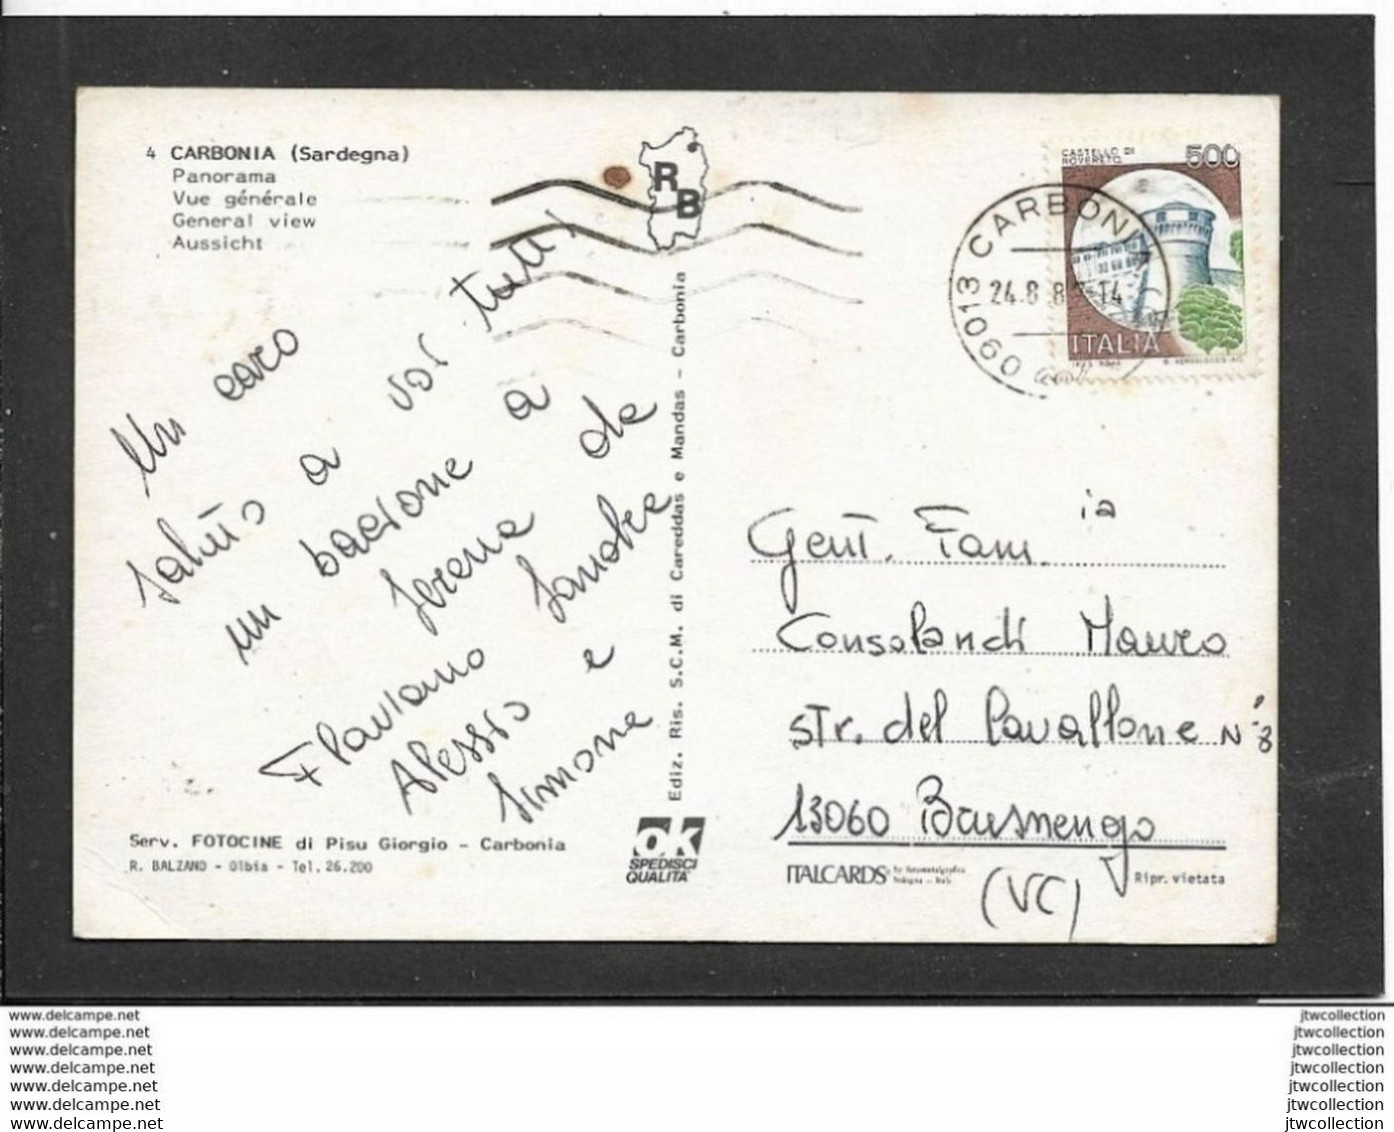 4 CARBONIA (Sardegna)
Panorama
Vue générale
General view
Aussicht
RB
CASTELLO DI
ROVERETO
500
ITALIA
09013 CARBONIA
24.8.8 -14
Un caro
saluto a voi tutti
un bacione a
Serena da
Flaviano Sandra
Alessio e
Simone
Ediz. Ris. S.C.M. di Careddas e Mandas - Carbonia
Gent. Fam.ia
Consolandi Mauro
Str. del Cavallone N° 8
13060 Brusnengo
(VC)
Serv. FOTOCINE di Pisu Giorgio - Carbonia
R. BALZANO - Olbia - Tel. 26.200
OK
SPEDISCI
QUALITA'
ITALCARDS by fotometalgrafica
Bologna - Italy
Ripr. vietata
www.delcampe.net
www.delcampe.net
www.delcampe.net
www.delcampe.net
www.delcampe.net
www.delcampe.net
www.delcampe.net
jtwcollection
jtwcollection
jtwcollection
jtwcollection
jtwcollection
jtwcollection
jtwcollection